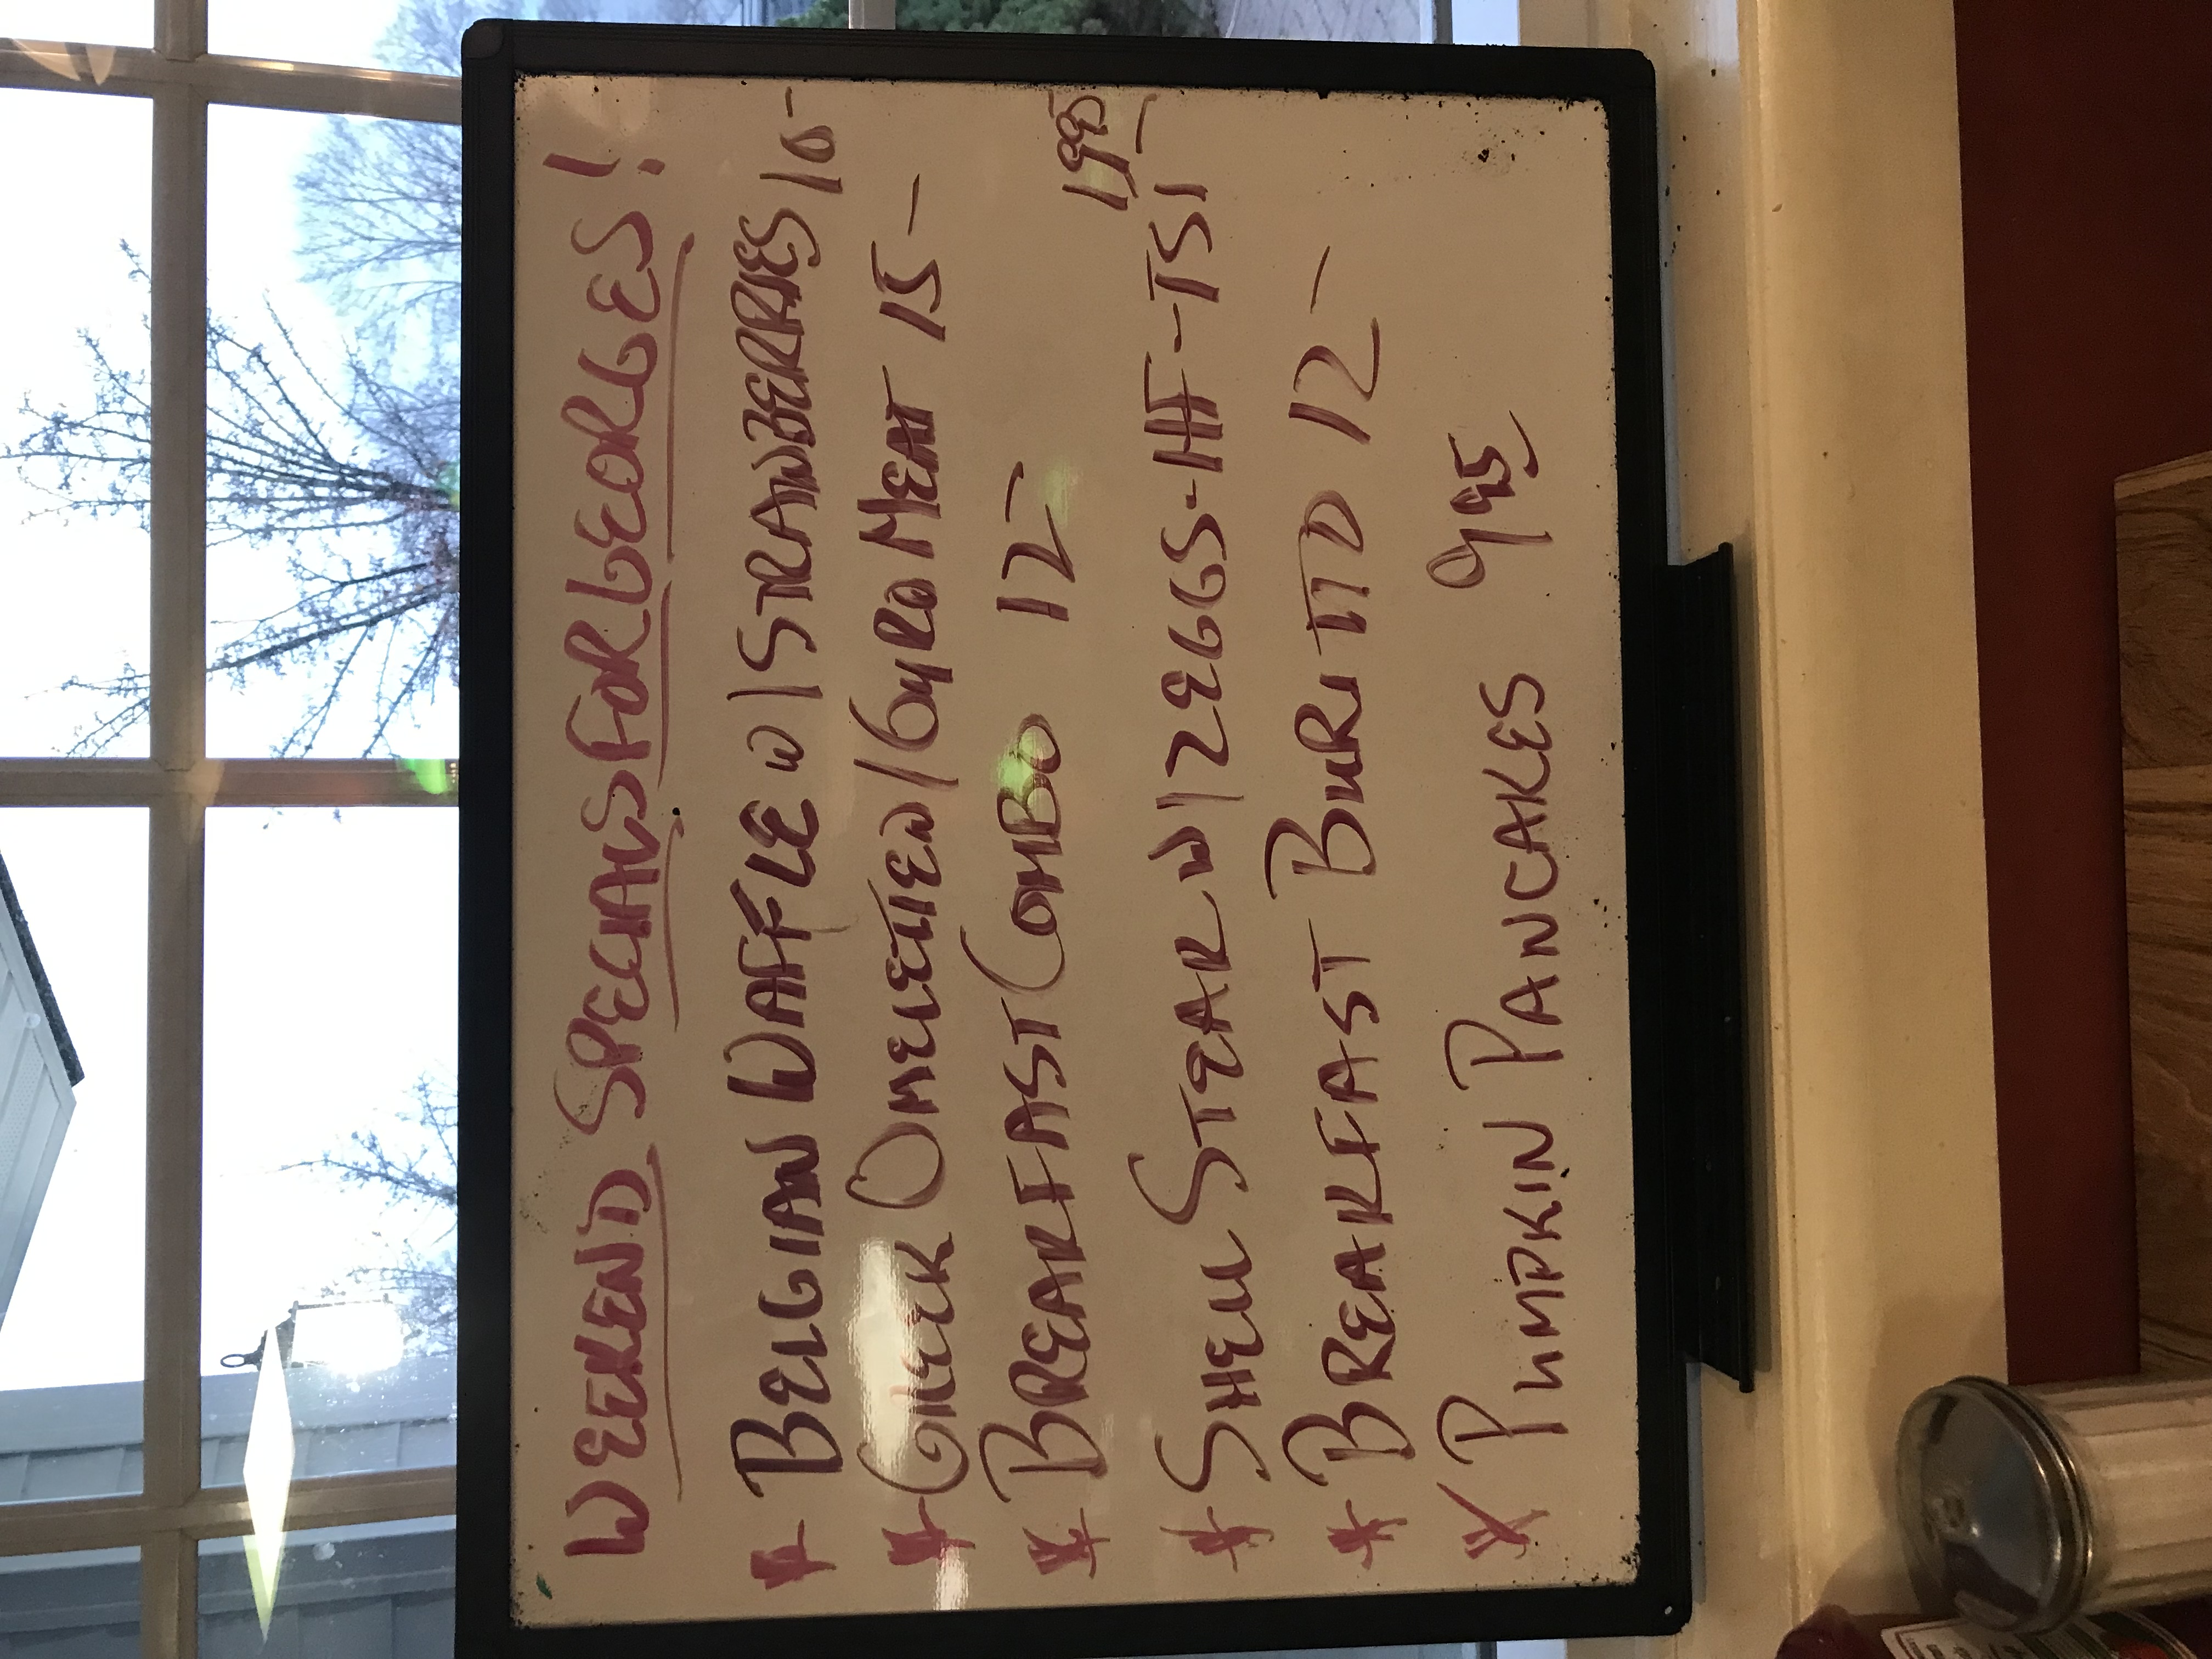 WEEKEND SPECIALS FOR GEORGES!
* BELGIAN WAFFLE w/STRAWBERRIES 10-
* GREEK OMELETTE w/GYRO MEAT 15-
* BREAKFAST COMBO 12-
* SHELL STEAK w/2 EGGS-HF-TST 1995
* BREAKFAST BURITTO 12-
* PUMPKIN PANCAKES 995